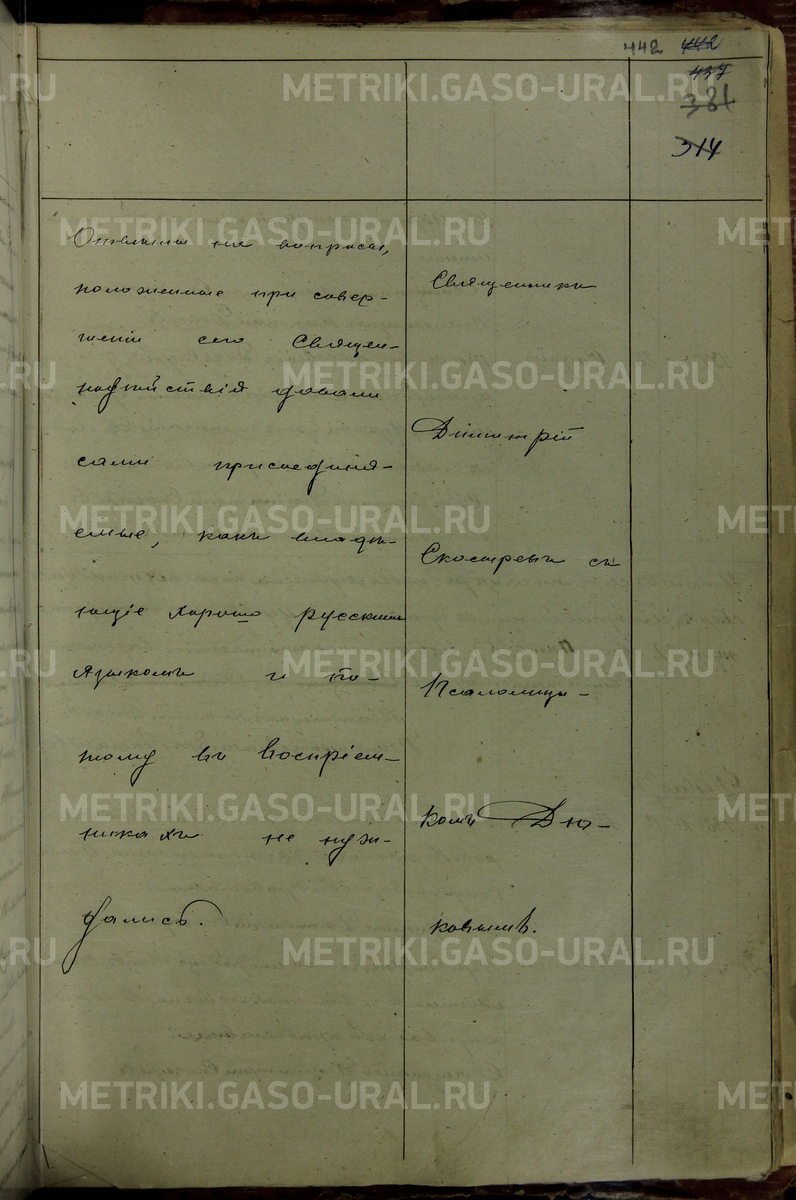 442 442
437
381
314
Отвѣты на вопросы,
положенные при совер-
шеніи сего Священ-
нодѣйствія давали
сами присоединя-
емые, какъ владѣ-
ющіе хорошо русскимъ
языкомъ и по-
тому въ воспріем-
никахъ не нуж-
дались.
Священникъ
Димитрій
Скостревъ съ
Псаломщи-
комъ Дю-
ковымъ.
METRIKI.GASO-URAL.RU